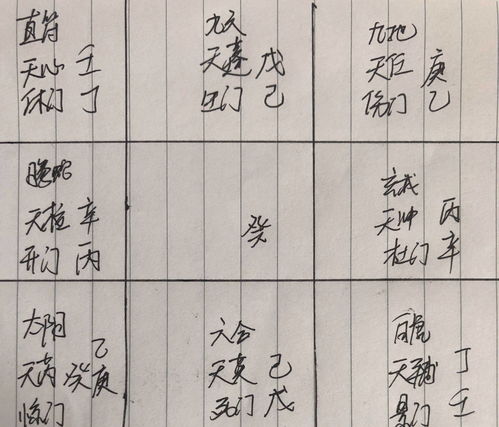 直符
天心 壬
休门 丁
九天
天蓬 戊
生门 己
九地
天任 庚
伤门 乙
天柱 辛
开门 丙
癸
玄武
天冲 丙
杜门 辛
太阴
天芮 癸 乙
惊门 庚
六合
天英 己
死门 戊
白虎
天辅 丁
景门 壬